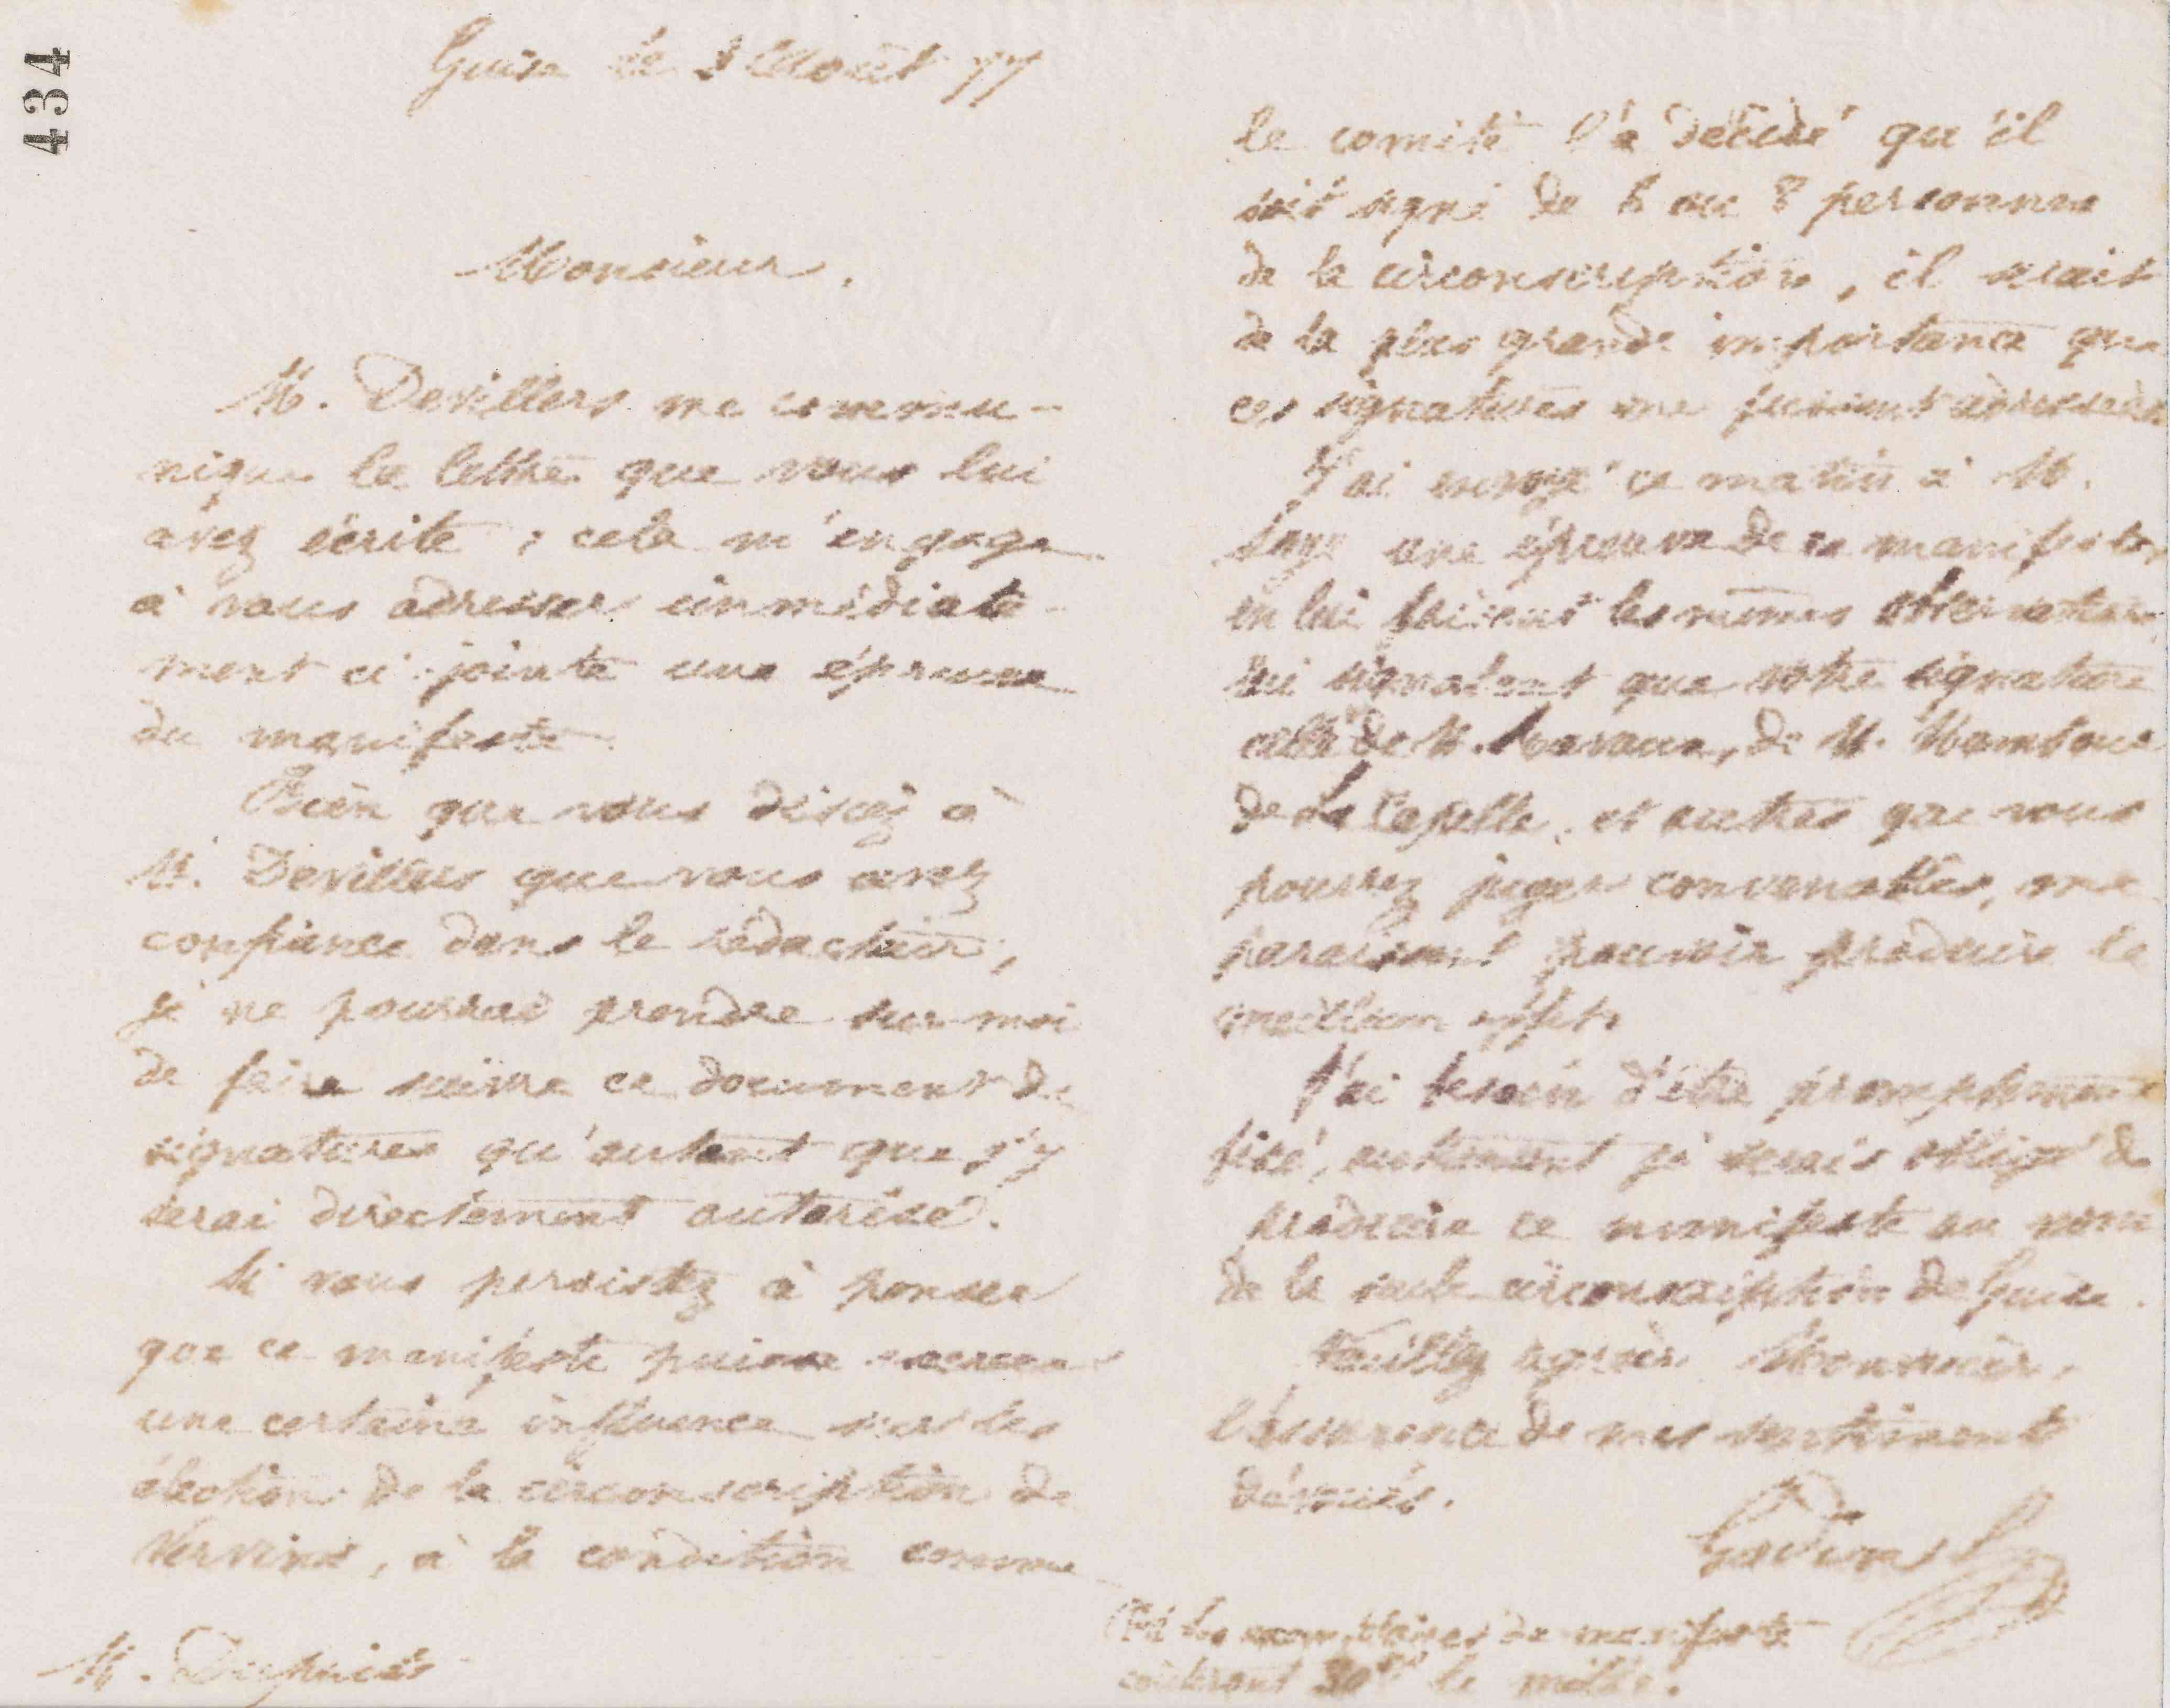 434
Guise le 3 Août 77
Monsieur,
M. Devillers me commu-
nique la lettre que vous lui
avez écrite ; cela m'engage
à vous adresser immédiate-
ment ci-jointe une épreuve
du manifeste.
Bien que vous disiez à
M. Devillers que vous avez
confiance dans le rédacteur,
je ne pourrai prendre sur moi
de faire suivre ce document de
signatures qu'autant que j'y
serai directement autorisé.
Si vous persistez à penser
que ce manifeste puisse exercer
une certaine influence sur les
élections de la circonscription de
Vervins, à la condition comme
M. Dupuis
le comité l'a décidé qu'il
soit signé de 6 ou 8 personnes
de la circonscription, il serait
de la plus grande importance que
ces signatures me fussent adressées
J'ai envoyé ce matin à M.
une épreuve de ce manifeste,
en lui faisant les mêmes observations,
lui signalant que votre signature
celle de M. de M.
de La Capelle, et autres que vous
pourrez juger convenables, me
paraissent pouvoir produire le
meilleur effet.
J'ai besoin d'être promptement
fixé, autrement je serais obligé de
produire ce manifeste au nom
de la seule circonscription de Guise.
Veuillez agréer, Monsieur,
l'assurance de mes sentiments
dévoués.
Godin
les exemplaires de manifeste
coûteront 30 le mille.